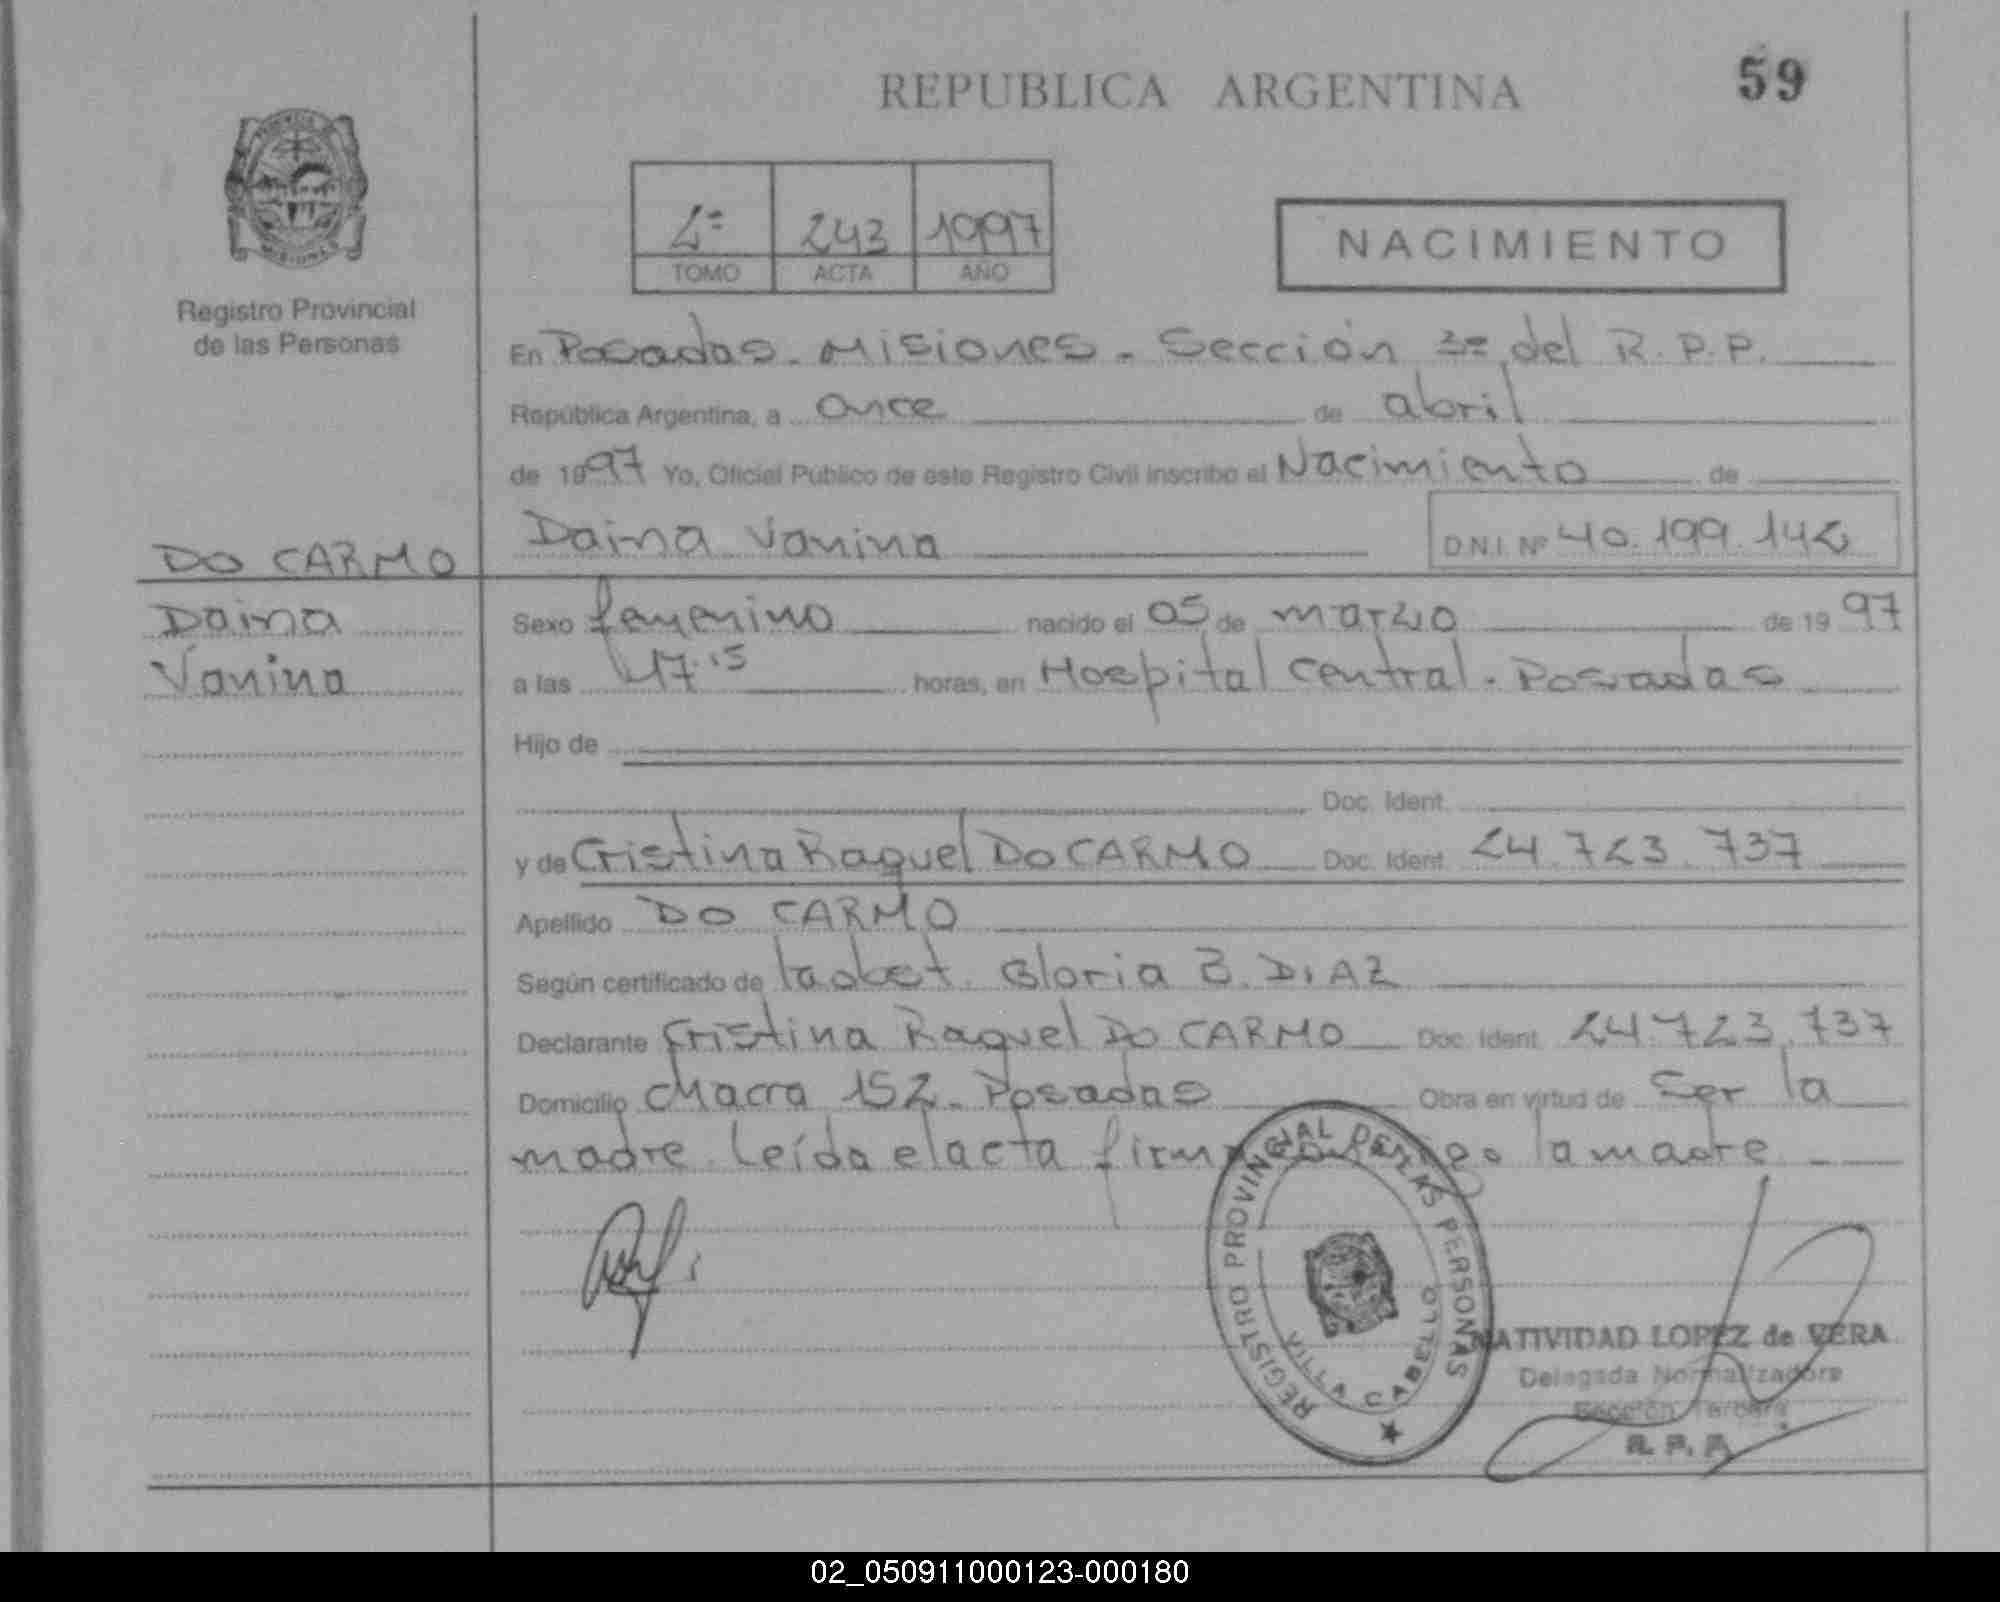 REPUBLICA ARGENTINA
59
2º 243 1997
TOMO ACTA AÑO
NACIMIENTO
Registro Provincial
de las Personas
En Posadas - Misiones - Sección 3º del R.P.P.
República Argentina, a once de abril
de 1997 Yo, Oficial Público de este Registro Civil inscribo el Nacimiento de
Daina Vanina D.N.I. Nº 40.199.142
DO CARMO
Daina
Vanina
Sexo femenino nacido el 05 de marzo de 1997
a las 17.15 horas, en Hospital Central. Posadas
Hijo de
Doc. Ident.
y de Cristina Raquel DO CARMO Doc. Ident. 24.723.737
Apellido DO CARMO
Según certificado de Gloria B. DIAZ
Declarante Cristina Raquel DO CARMO Doc. Ident. 24.723.737
Domicilio Chacra 152 - Posadas Obra en virtud de Ser la
madre. Leída el acta firma la madre
REGISTRO PROVINCIAL DE LAS PERSONAS
VILLA CABELLO
NATIVIDAD LOPEZ de VERA
Delegada Normalizadora
Sección Tercera
R. P. P.
02_050911000123-000180